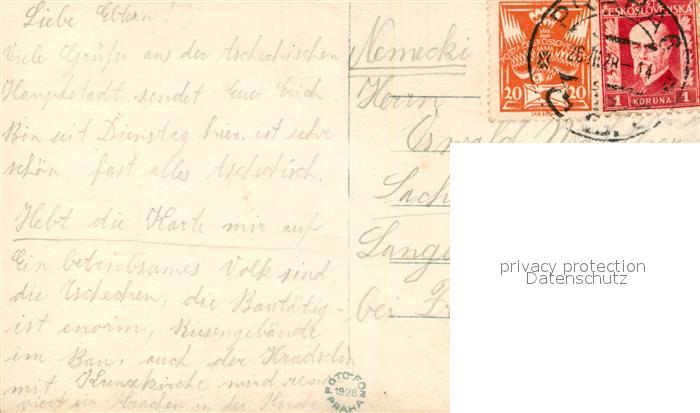 Liebe Eltern!
Viele Grüße aus der tschechischen
Hauptstadt sendet Euer Erich
Bin seit Dienstag hier, ist sehr
schön, fast alles tschechisch.
Hebt die Karte mir auf
Ein betriebsames Volk sind
die Tschechen, die Bautätig-
ist enorm, Riesengebäude
im Bau, auch der Hradschin
mit Kreuzkirche wird reno
viert
in der Kirche
FOTO-FON
1928
PRAHA
Nemecki
Herrn
Oswald
Sach
Lange
bei
POŠTA ČESKOSLOVENSKÁ
20 20
ČESKOSLOVENSKO
1 KORUNA 1
privacy protection
Datenschutz